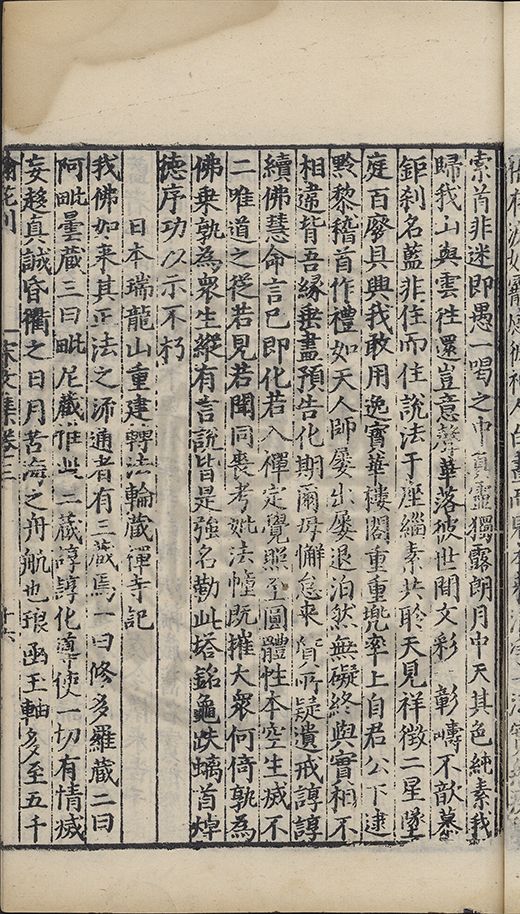 索苟非迷即愚一喝之中真靈獨露朗月中天其色純素我
歸我山與雲徃還豈意聲華落彼世間文彩一彰疇不歆慕
鉅刹名藍非住而住說法于座緇素共聆天見祥徵二星墜
庭百廢具興我敢用逸寳華樓閣重重兠率上自君公下逮
黔黎稽首作禮如天人師屡出屡退泊然無礙終與實相不
相違背吾緣垂盡預告化期爾毋懈怠來質所疑遺戒諄諄
續佛慧命言已即化若入禪定覺照至圓體性本空生㓕不
二唯道之從若見若聞同喪考妣法幢既摧大衆何倚孰為
佛乗孰為衆生縱有言說皆是強名勒此塔銘龜趺螭首焯
德序功以示不朽
日本瑞龍山重建轉法輪蔵禪寺記
我佛如来其正法之流通者有三蔵焉一曰修多羅蔵二曰
阿毗曇蔵三曰毗尼蔵惟此三蔵諄諄化導使一切有情㓕
妄趍真誠昏衢之日月苦海之舟航也琅函玉軸多至五千
宋文集卷三
十六